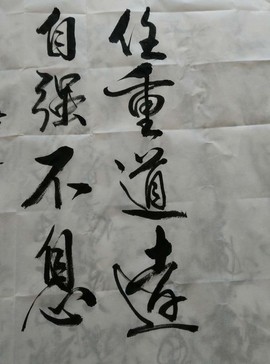 任重道遠
自强不息